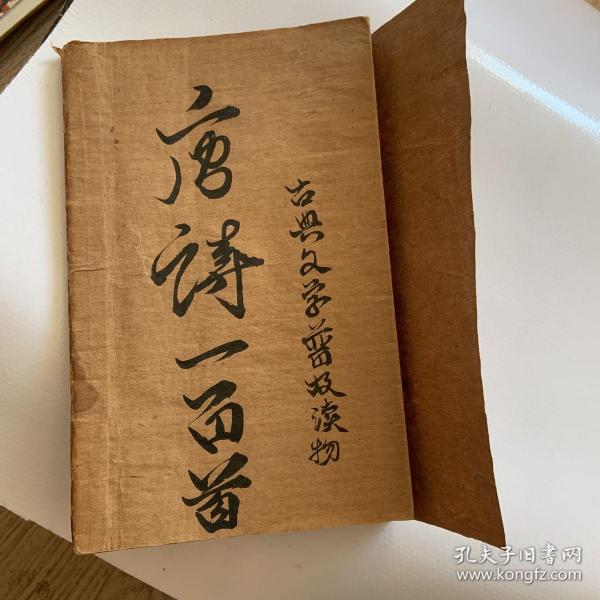 唐詩一百首
古典文学普及读物
孔夫子旧書网
www.kongfz.com